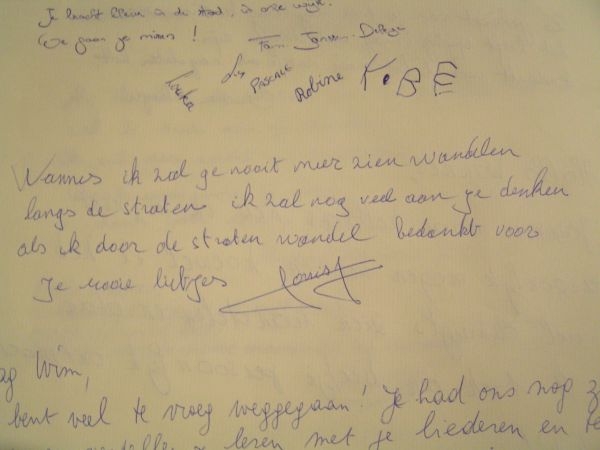 Je bracht kleur in de stad, in onze wijk.
We gaan je missen ! Fam. Janssen -
Louka Lily PASCALE Robine KOBE
Wannes ik zal je nooit meer zien wandelen
langs de straten ik zal nog veel aan je denken
als ik door de straten wandel bedankt voor
Je mooie liedjes Joris
ag Wim,
bent veel te vroeg weggegaan! Je had ons nog z
leren met je liederen en te